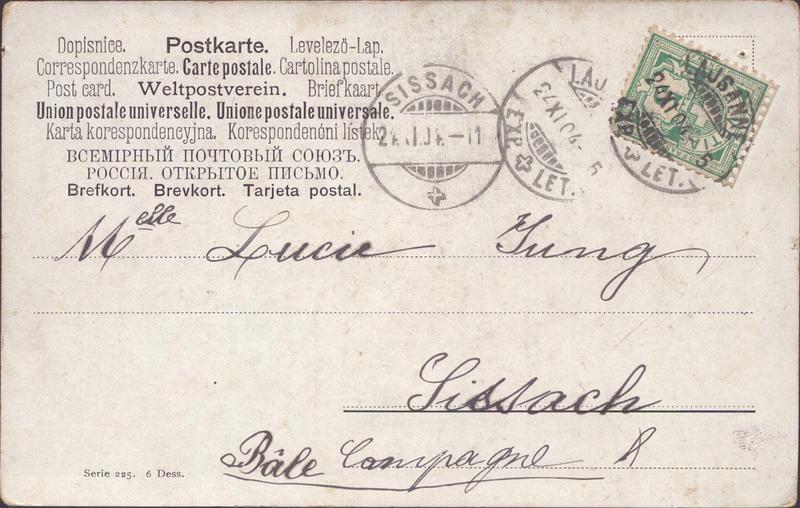 Dopisnice. Postkarte. Levelező-Lap.
Correspondenzkarte. Carte postale. Cartolina postale.
Post card. Weltpostverein. Briefkaart.
Union postale universelle. Unione postale universale.
Karta korespondencyjna. Korespondenční lístek.
ВСЕМІРНЫЙ ПОЧТОВЫЙ СОЮЗЪ.
РОССІЯ. ОТКРЫТОЕ ПИСЬМО.
Brefkort. Brevkort. Tarjeta postal.
SISSACH
24.XI.04.-11
LAU
24 XI 04 5
EXP. LET.
LAUSANNE
24 XI 04 5
EXP. LET.
Melle Lucie Jung
Sissach
Bâle Compagne
Serie 225. 6 Dess.